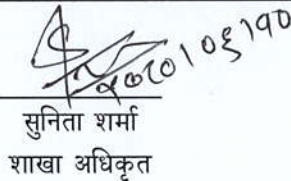 २०८०।०६।१०
सुनिता शर्मा
शाखा अधिकृत